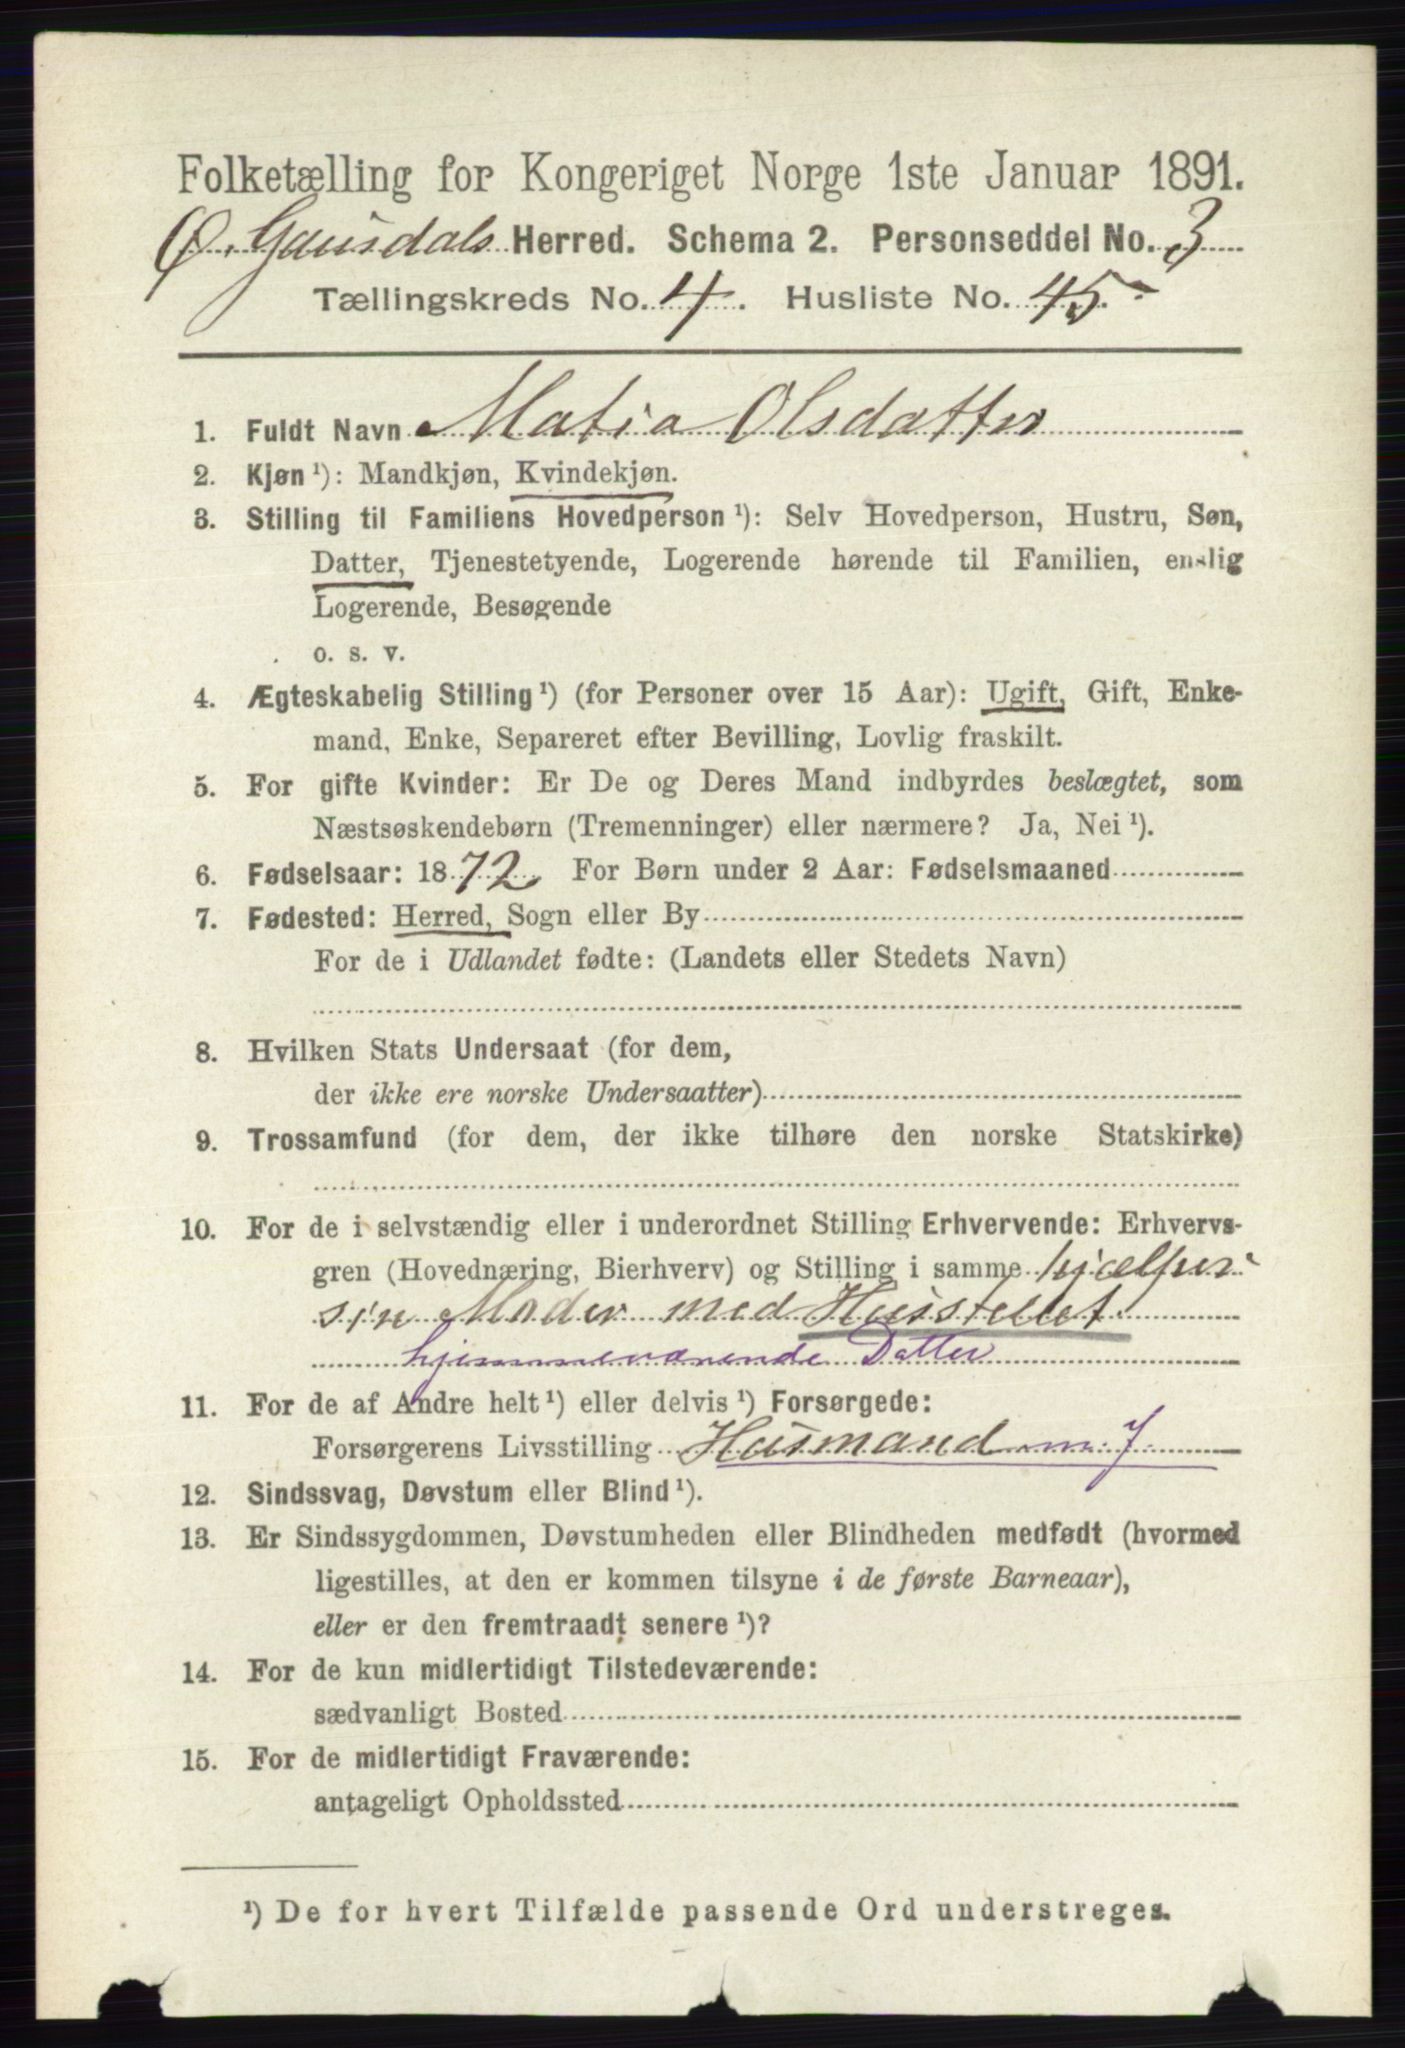 Folketælling for Kongeriget Norge 1ste Januar 1891.
Ø. Gausdals Herred. Schema 2. Personseddel No. 3
Tællingskreds No. 4. Husliste No. 45.
1. Fuldt Navn Matia Olsdatter
2. Kjøn ¹): Mandkjøn, Kvindekjøn.
3. Stilling til Familiens Hovedperson ¹): Selv Hovedperson, Hustru, Søn,
Datter, Tjenestetyende, Logerende hørende til Familien, enslig
Logerende, Besøgende
o. s. v.
4. Ægteskabelig Stilling ¹) (for Personer over 15 Aar): Ugift, Gift, Enke-
mand, Enke, Separeret efter Bevilling, Lovlig fraskilt.
5. For gifte Kvinder: Er De og Deres Mand indbyrdes beslægtet, som
Næstsøskendebørn (Tremenninger) eller nærmere? Ja, Nei ¹).
6. Fødselsaar: 1872 For Børn under 2 Aar: Fødselsmaaned
7. Fødested: Herred, Sogn eller By
For de i Udlandet fødte: (Landets eller Stedets Navn)
8. Hvilken Stats Undersaat (for dem,
der ikke ere norske Undersaatter)
9. Trossamfund (for dem, der ikke tilhøre den norske Statskirke)
10. For de i selvstændig eller i underordnet Stilling Erhvervende: Erhvervs-
gren (Hovednæring, Bierhverv) og Stilling i samme hjælper
sin Moder med Husstellet
hjemmeværende Datter
11. For de af Andre helt ¹) eller delvis ¹) Forsørgede:
Forsørgerens Livsstilling Husmand m. J.
12. Sindssvag, Døvstum eller Blind ¹).
13. Er Sindssygdommen, Døvstumheden eller Blindheden medfødt (hvormed
ligestilles, at den er kommen tilsyne i de første Barneaar),
eller er den fremtraadt senere ¹)?
14. For de kun midlertidigt Tilstedeværende:
sædvanligt Bosted
15. For de midlertidigt Fraværende:
antageligt Opholdssted
¹) De for hvert Tilfælde passende Ord understreges.